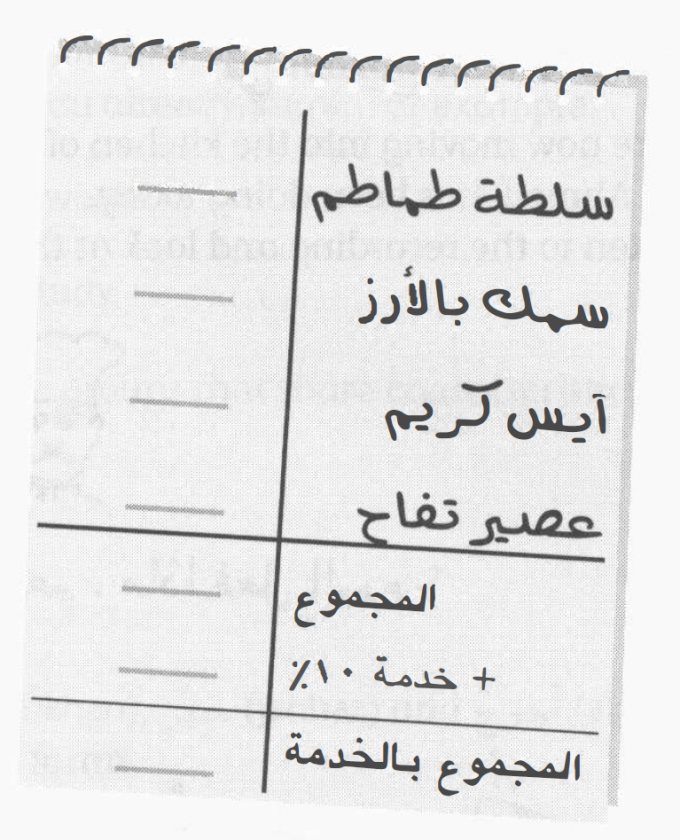 سلطة طماطم
سمك بالأرز
آيس كريم
عصير تفاح
المجموع
+ خدمة ١٠٪
المجموع بالخدمة